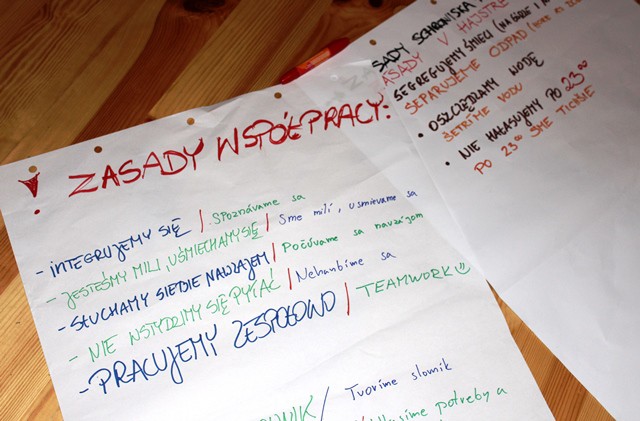 ! ZASADY WSPÓŁPRACY:
- INTEGRUJEMY SIĘ | Spoznávame sa
- JESTEŚMY MILI, UŚMIECHAMY SIĘ | Sme milí, usmievame sa
- SŁUCHAMY SIEBIE NAWZAJEM | Počúvame sa navzájom
- NIE WSTYDZIMY SIĘ PYTAĆ | Nehanbime sa
- PRACUJEMY ZESPOŁOWO | TEAMWORK ☺
/ Tvoríme slovník
potreby a
SADY SCHRONISKA
ZASADY V HAJSTRE
SEGREGUJEMY ŚMIECI (NA
SEPARUJEME ODPAD
• OSZCZĘDZAMY WODĘ
ŠETRÍME VODU
• NIE HAŁASUJEMY PO 23:00
PO 23:00 SME TICHŠIE